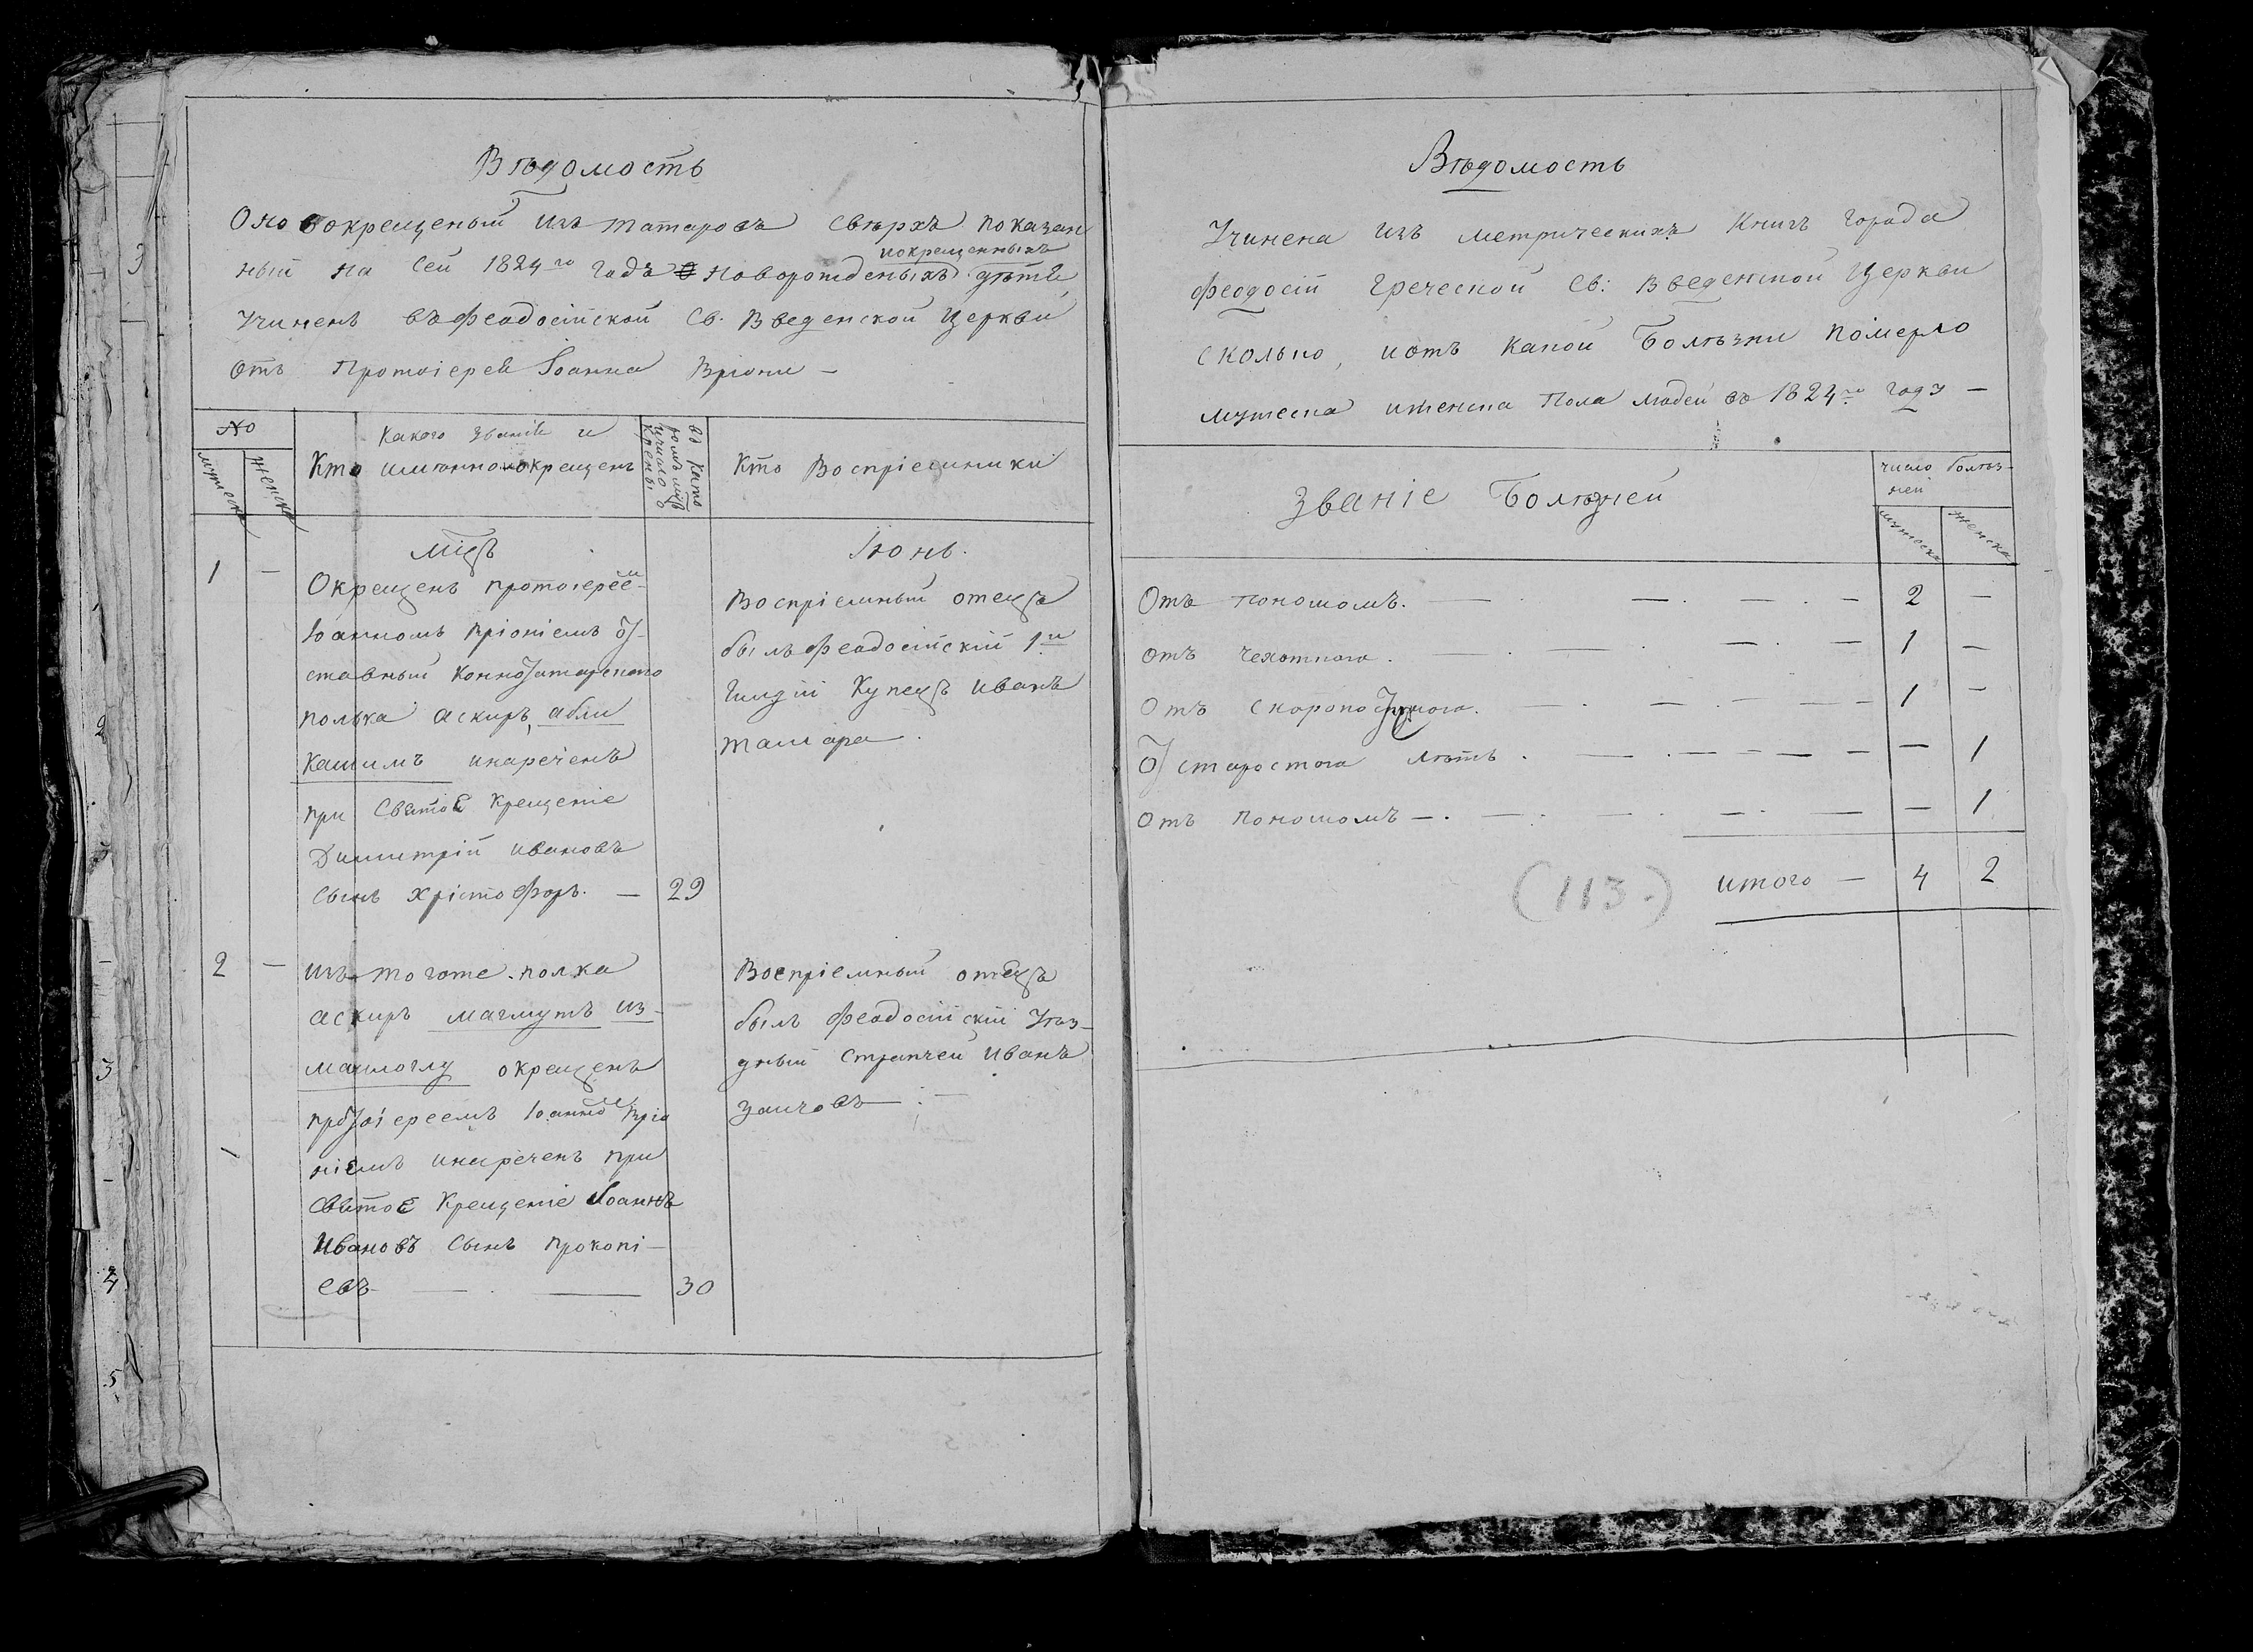 Вѣдомость
О новокрещеный изъ татаровъ сверхъ показан
ный на сей 1824го годъ новорожденыхъ дѣтѣ
покрещенныхъ
Учиненъ въ Феодосійской Св. Введенской Церкви
отъ Протоіерея Іоанна Вріони —
№
мужеска
женска
Какого званія и
Кто имянно окрещенъ
въ като
Кто Воспріемники
мцъ
Іюнь.
1 —
Окрещенъ протоіерее-
Іоанномъ Вріоніемъ о
ставный Коннотатарскаго
полька аскиръ, абли
кашимъ инареченъ
при Святоѣ Крещеніе
Димитрій Ивановъ
сынъ Хрістофоръ. — 29
Воспріемный отецъ
былъ Феодосійскій 1й
Гилдіи Купецъ Иванъ
тамара.
2 —
изъ тогоже полка
аскиръ магмутъ из-
маилоглу окрещенъ
протоіереемъ Іоанно Вріо
ніемъ инареченъ при
святое Крещеніе Іоаннъ
Ивановъ Сынъ Прокопі-
евъ — 30
Воспріемный отецъ
былъ Феодосійскій Уѣз-
дный Стряпчей Иванъ
заичовъ
Вѣдомость
Учинена изъ метрическихъ Книгъ города
Феодосіи Греческой Св: Введенской Церкви
сколько, иотъ какой Болѣзни померло
мужеска иженска Пола людей въ 1824го году —
Званіе Болѣзней
число болѣз-
ней
мужеска
женска
Отъ поносомъ. — 2 —
отъ чехотнога. — 1 —
Отъ скоропостижнога. — 1 —
От старостога лѣтъ. — — 1
Отъ Поносомъ — — 1
(113.) итого — 4 2